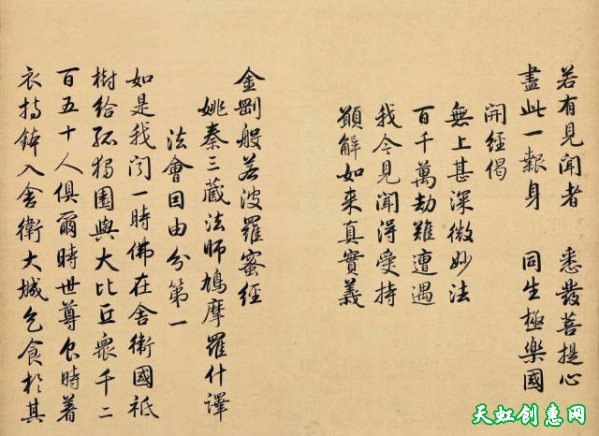 若有見聞者 悉發菩提心
盡此一報身 同生極樂國
開經偈
無上甚深微妙法
百千萬劫難遭遇
我今見聞得受持
願解如來真實義
金剛般若波羅蜜經
姚秦三藏法師鳩摩羅什譯
法會因由分第一
如是我聞一時佛在舍衛國祇
樹給孤獨園與大比丘眾千二
百五十人俱爾時世尊食時著
衣持鉢入舍衛大城乞食於其
天虹创惠网